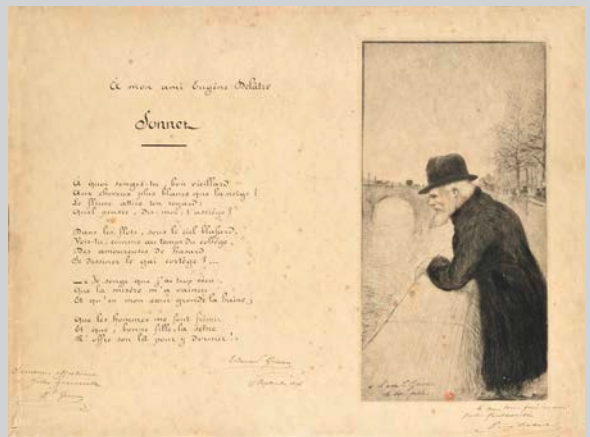 À mon ami Eugène Delâtre
Sonnet
À quoi songes-tu, bon vieillard
Aux cheveux plus blancs que la neige ?
Le fleuve attire ton regard ;
Quel penser, dis-moi, t'assiège ?
Dans les flots, sous le ciel blafard,
Vois-tu, comme au temps du collège,
Des amoureuses de hasard
Se dessiner le gai cortège ? ...
— « Je songe que j'ai trop vécu
Que la misère m'a vaincu
Et qu'en mon cœur gronde la haine ;
Que les hommes me font frémir
Et que, bonne fille, la Seine
M'offre son lit pour y dormir ! »
Septembre